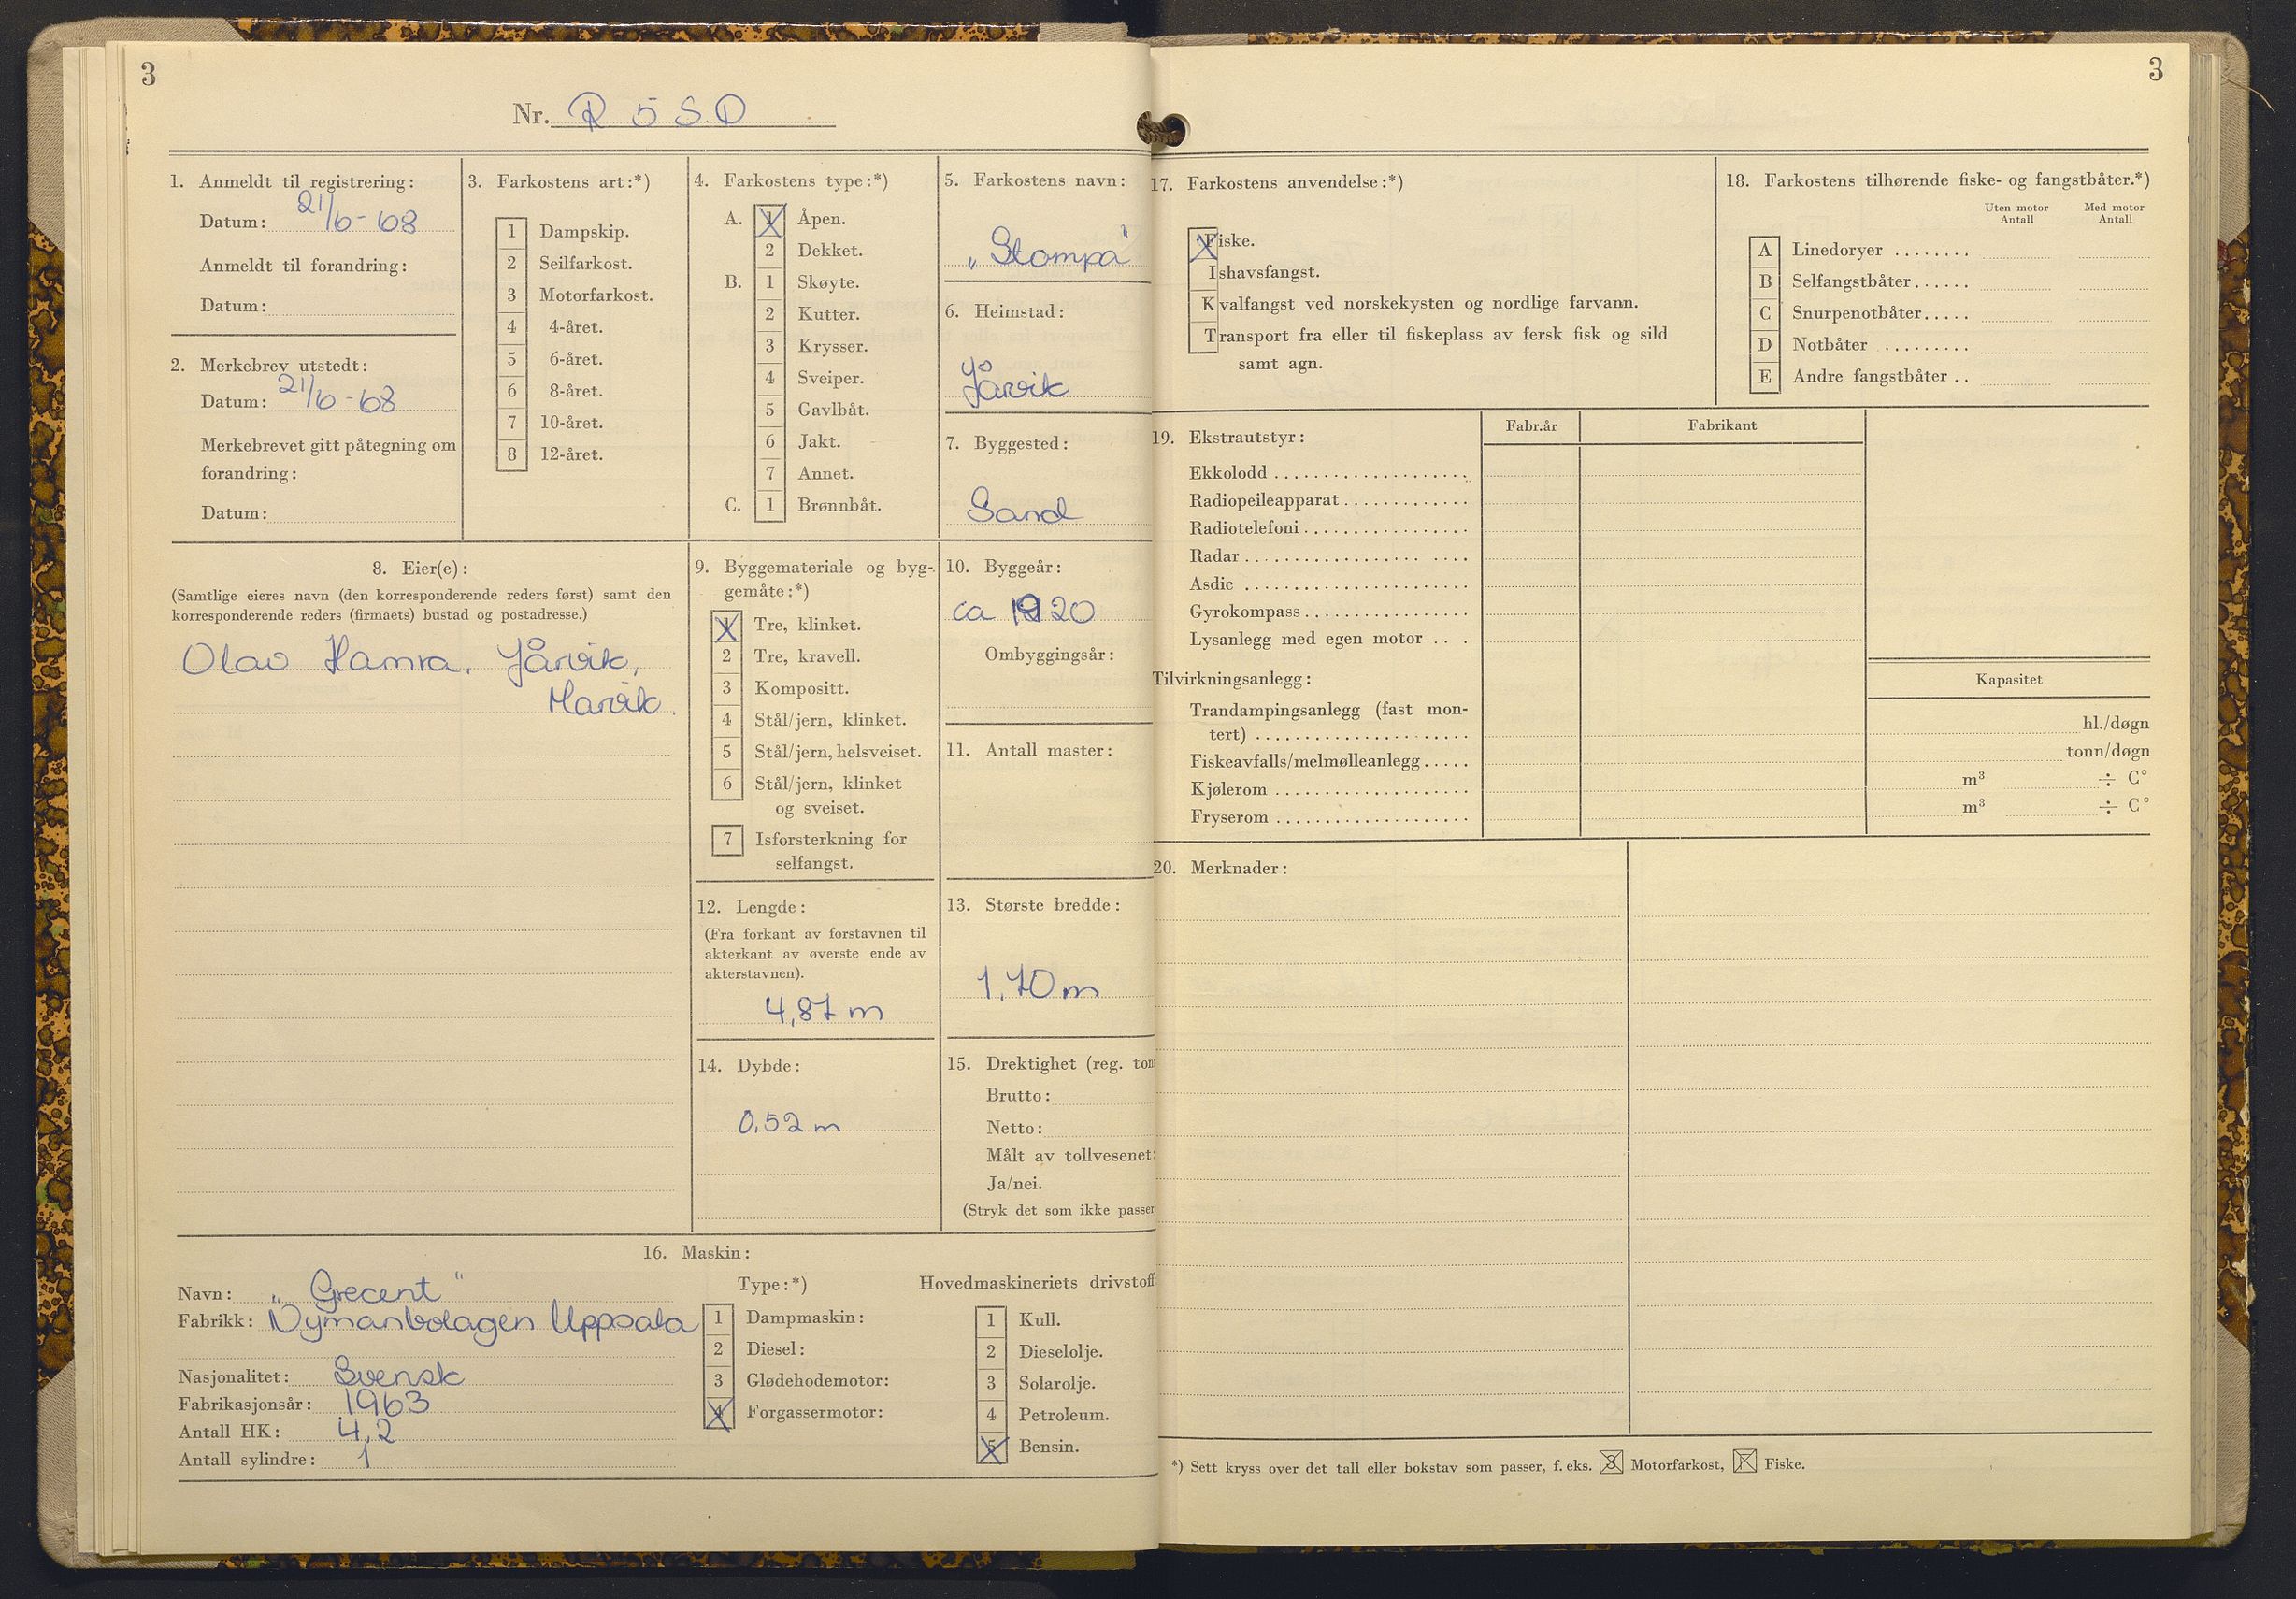 3
Nr. R 5 S.D
1. Anmeldt til registrering:
Datum: 21/6-68
Anmeldt til forandring:
Datum:
2. Merkebrev utstedt:
Datum: 21/6-68
Merkebrevet gitt påtegning om
forandring:
Datum:
3. Farkostens art:*)
1 Dampskip.
2 Seilfarkost.
3 Motorfarkost.
4 4-året.
5 6-året.
6 8-året.
7 10-året.
8 12-året.
4. Farkostens type:*)
A. 1 Åpen.
2 Dekket.
B. 1 Skøyte.
2 Kutter.
3 Krysser.
4 Sveiper.
5 Gavlbåt.
6 Jakt.
7 Annet.
C. 1 Brønnbåt.
5. Farkostens navn:
„Stompa"
6. Heimstad:
Jårvik
7. Byggested:
Sand
8. Eier(e):
(Samtlige eieres navn (den korresponderende reders først) samt den
korresponderende reders (firmaets) bustad og postadresse.)
Olav Hamra. Jårvik,
Marvik.
9. Byggemateriale og byg-
gemåte:*)
1 Tre, klinket.
2 Tre, kravell.
3 Kompositt.
4 Stål/jern, klinket.
5 Stål/jern, helsveiset.
6 Stål/jern, klinket
og sveiset.
7 Isforsterkning for
selfangst.
10. Byggeår:
ca 1920
Ombyggingsår:
11. Antall master:
12. Lengde:
(Fra forkant av forstavnen til
akterkant av øverste ende av
akterstavnen).
4,87 m
13. Største bredde:
1,70 m
14. Dybde:
0,52 m
15. Drektighet (reg. ton
Brutto:
Netto:
Målt av tollvesenet:
Ja/nei.
(Stryk det som ikke passer
16. Maskin:
Navn: „Grecent"
Fabrikk: Nymanbolagen Uppsala
Nasjonalitet: Svensk
Fabrikasjonsår: 1963
Antall HK: 4,2
Antall sylindre: 1
Type:*)
1 Dampmaskin:
2 Diesel:
3 Glødehodemotor:
4 Forgassermotor:
Hovedmaskineriets drivstoff
1 Kull.
2 Dieselolje.
3 Solarolje.
4 Petroleum.
5 Bensin.
3
17. Farkostens anvendelse:*)
Fiske.
Ishavsfangst.
Kvalfangst ved norskekysten og nordlige farvann.
Transport fra eller til fiskeplass av fersk fisk og sild
samt agn.
18. Farkostens tilhørende fiske- og fangstbåter.*)
Uten motor Med motor
Antall Antall
A Linedoryer ........
B Selfangstbåter......
C Snurpenotbåter.....
D Notbåter .........
E Andre fangstbåter ..
19. Ekstrautstyr:
Fabr.år Fabrikant
Ekkolodd
Radiopeileapparat
Radiotelefoni
Radar
Asdic
Gyrokompass
Lysanlegg med egen motor ...
Tilvirkningsanlegg:
Kapasitet
Trandampingsanlegg (fast mon-
tert) hl./døgn
Fiskeavfalls/melmølleanlegg..... tonn/døgn
Kjølerom m³ ÷ C°
Fryserom m³ ÷ C°
20. Merknader:
*) Sett kryss over det tall eller bokstav som passer, f. eks. 3 Motorfarkost, F Fiske.